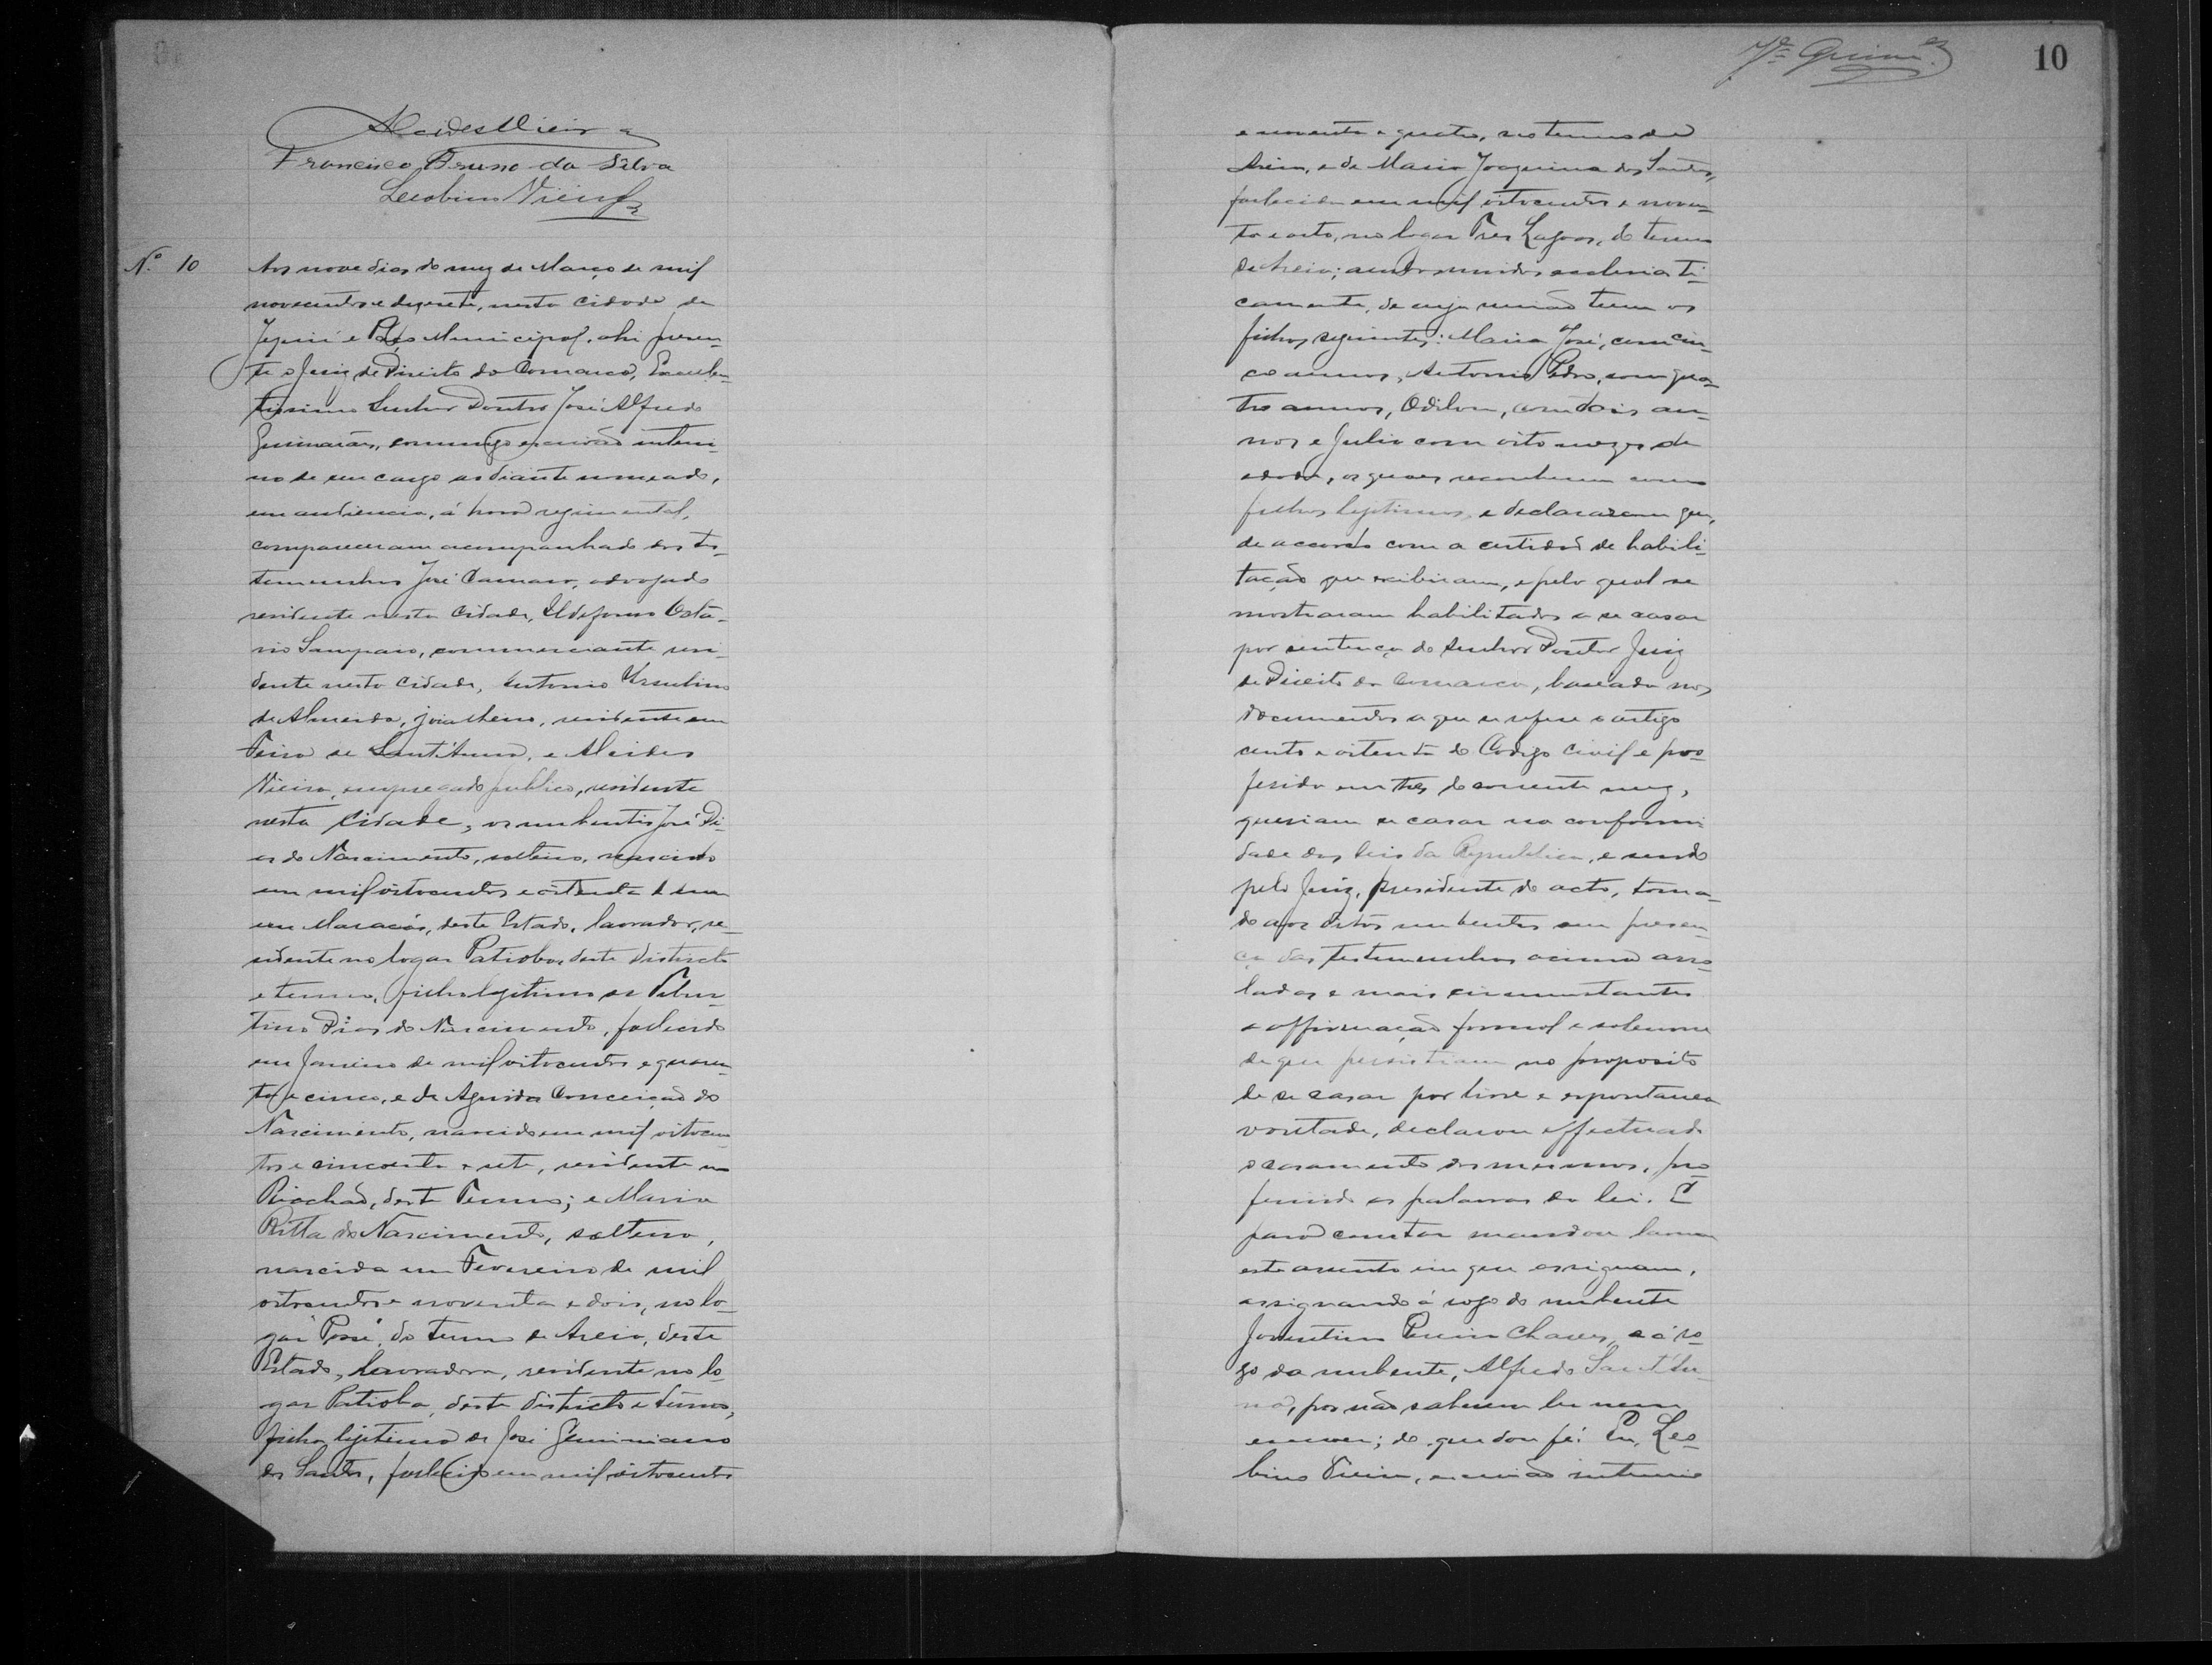 Alcides Vieira
Francisco Bruno da Silva
Leobino Vieira
Nº 10
Aos nove dias do mez de Março de mil
novecentos e dezesete, nesta cidade de
Jequié e Paço Municipal, ahi presen-
te o Juiz de Direito da Comarca, Excellen-
tissimo Senhor Doutor José Alfredo
Guimarães, commigo escrivão interi-
no de seu cargo ao diante nomeado,
em audiencia, á hora regimental,
compareceram acompanhado das tes-
temunhas José Camaro, advogado
residente nesta cidade, Ildefonso Octa-
vio Sampaio, commerciante resi-
dente nesta cidade, Antonio Ursulino
de Almeida, joialheiro, residente em
Feira de Sant'Anna, e Alcides
Vieira, empregado publico, residente
nesta cidade, os nubentes José Di-
as do Nascimento, solteiro, nascido
em mil oitocentos e oitenta e um
em Maracás, deste Estado, lavrador, re-
sidente no logar Patioba, deste districto
e termo, filho legitimo de
Dias do Nascimento, fallecido
em Janeiro de mil oitocentos e quaren-
ta e cinco, e de Aguida Conceição do
Nascimento, nascida em mil oitocen-
tos e cincoenta e sete, residente no
Riachão, deste Termo; e Maria
Ritta do Nascimento, solteira,
nascida em Fevereiro de mil
oitocentos e noventa e dois, no lo-
gar do termo de Areia, deste
Estado, lavradora, residente no lo-
gar Patioba, deste districto e termo,
filha legitima de José Geminiano
dos Santos, fallecido em mil oitocentos
Jé Guimes
10
e noventa e quatro, no termo de
Areia, e de Maria Joaquina dos Santos,
fallecida em mil oitocentos e noven-
ta e oito, no logar Tres Lagoas, do termo
de Areia; ambos unidos ecclesiasti-
camente, de cuja união tem os
filhos seguintes: Maria José, com cin-
co annos, Antonio Pedro, com qua-
tro annos, Odilon, com dois an-
nos e Julio com oito mezes de
edade, os quaes reconhecem como
filhos legitimos, e declararam que,
de accordo com a certidão de habili-
tação que exibiram, e pelo qual se
mostraram habilitados a se casar
por sentença do Senhor Doutor Juiz
de Direito da Comarca, baseada nos
documentos a que se refere o artigo
cento e oitenta do Codigo Civil e pro-
ferida em tres do corrente mez,
queriam se casar na conformi-
dade das leis da Republica, e sendo
pelo Juiz, presidente do acto, toma-
do aos ditos nubentes em presen-
ça das testemunhas acima arro-
ladas e mais circumstantes
a affirmação formal e solemne
de que persistiam no proposito
de se casar por livre e espontanea
vontade, declarou effectuado
o casamento dos mesmos, pro-
ferindo as palavras da lei. E
para constar mandou lavrar
este assento em que assignam,
assignando á rogo do nubente
Juventino Chaves, e á ro-
go da nubente, Alfredo Sant'An-
na, por não saberem ler nem
escrever; do que dou fé. Eu, Leo-
bino Vieira, escrivão interino